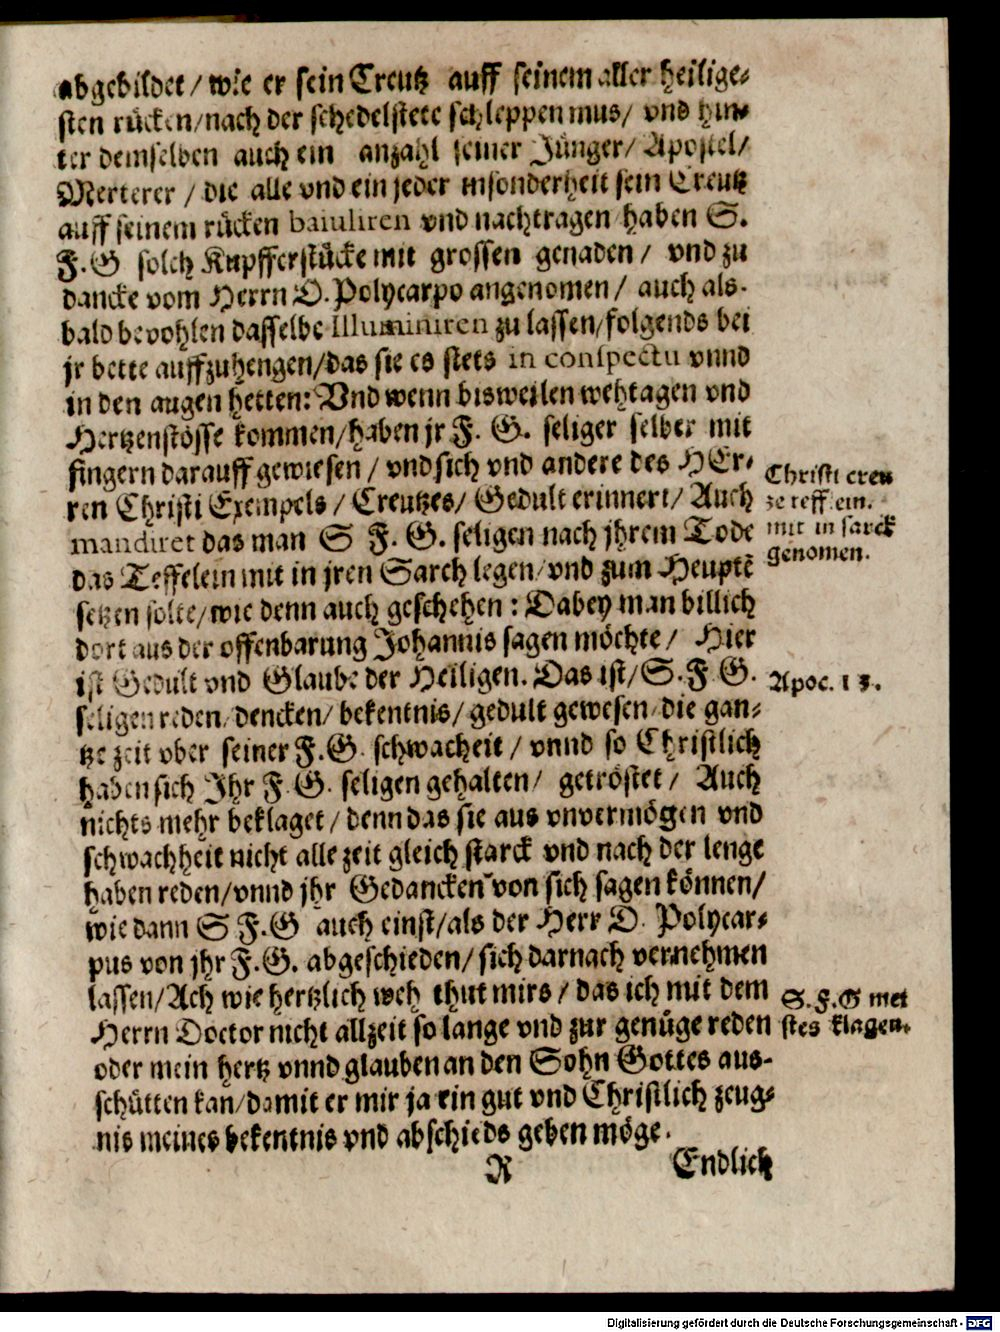 abgebildet/ wie er sein Creutz auff seinem aller heilige-
sten rücken/nach der schedelstete schleppen mus/ vnd hin-
ter demselben auch ein anzahl seiner Jünger/ Apostel/
Merterer / die alle vnd ein jeder insonderheit sein Creutz
auff seinem rücken baiuliren vnd nachtragen haben S.
F. G solch Kupfferstücke mit grossen genaden/ vnd zu
dancke vom Herrn D. Polycarpo angenomen/ auch als-
bald bevohlen dasselbe Illuminiren zu lassen/folgends bei
jr bette auffzuhengen/das sie es stets in conspectu vnnd
in den augen hetten: Vnd wenn bisweilen wehtagen vnd
Hertzenstösse kommen/haben jr F. G. seliger selber mit
fingern darauff gewiesen / vnd sich vnd andere des HEr-
ren Christi Exempels / Creutzes/ Gedult erinnert/ Auch
mandiret das man S F. G. seligen nach jhrem Tode
das Teffelein mit in jren Sarch legen/vnd zum Heuptē
setzen solte/wie denn auch geschehen : Dabey man billich
dort aus der offenbarung Johannis sagen möchte/ Hier
ist Gedult vnd Glaube der Heiligen. Das ist/S. F. G.
seligen reden/ dencken/ bekentnis/ gedult gewesen die gan-
tze zeit vber seiner F. G. schwacheit / vnnd so Christlich
haben sich Ihr F. G. seligen gehalten/ getröstet/ Auch
nichts mehr beklaget/ denn das sie aus vnvermögen vnd
schwachheit nicht alle zeit gleich starck vnd nach der lenge
haben reden/vnnd jhr Gedancken von sich sagen können/
wie dann S F. G auch einst/als der Herr D. Polycar-
pus von jhr F. G. abgeschieden/ sich darnach vernehmen
lassen/Ach wie hertzlich weh thut mirs / das ich mit dem
Herrn Doctor nicht allzeit so lange vnd zur genüge reden
oder mein hertz vnnd glauben an den Sohn Gottes aus-
schütten kan/damit er mir ja ein gut vnd Christlich zeug-
nis meines bekentnis vnd abschieds geben möge.
R Endlich
Christi creu
ze teff. ein.
mit in sarck
genomen.
Apoc. 13.
S. F. G mei
stes klagen.
Digitalisierung gefördert durch die Deutsche Forschungsgemeinschaft - DFG